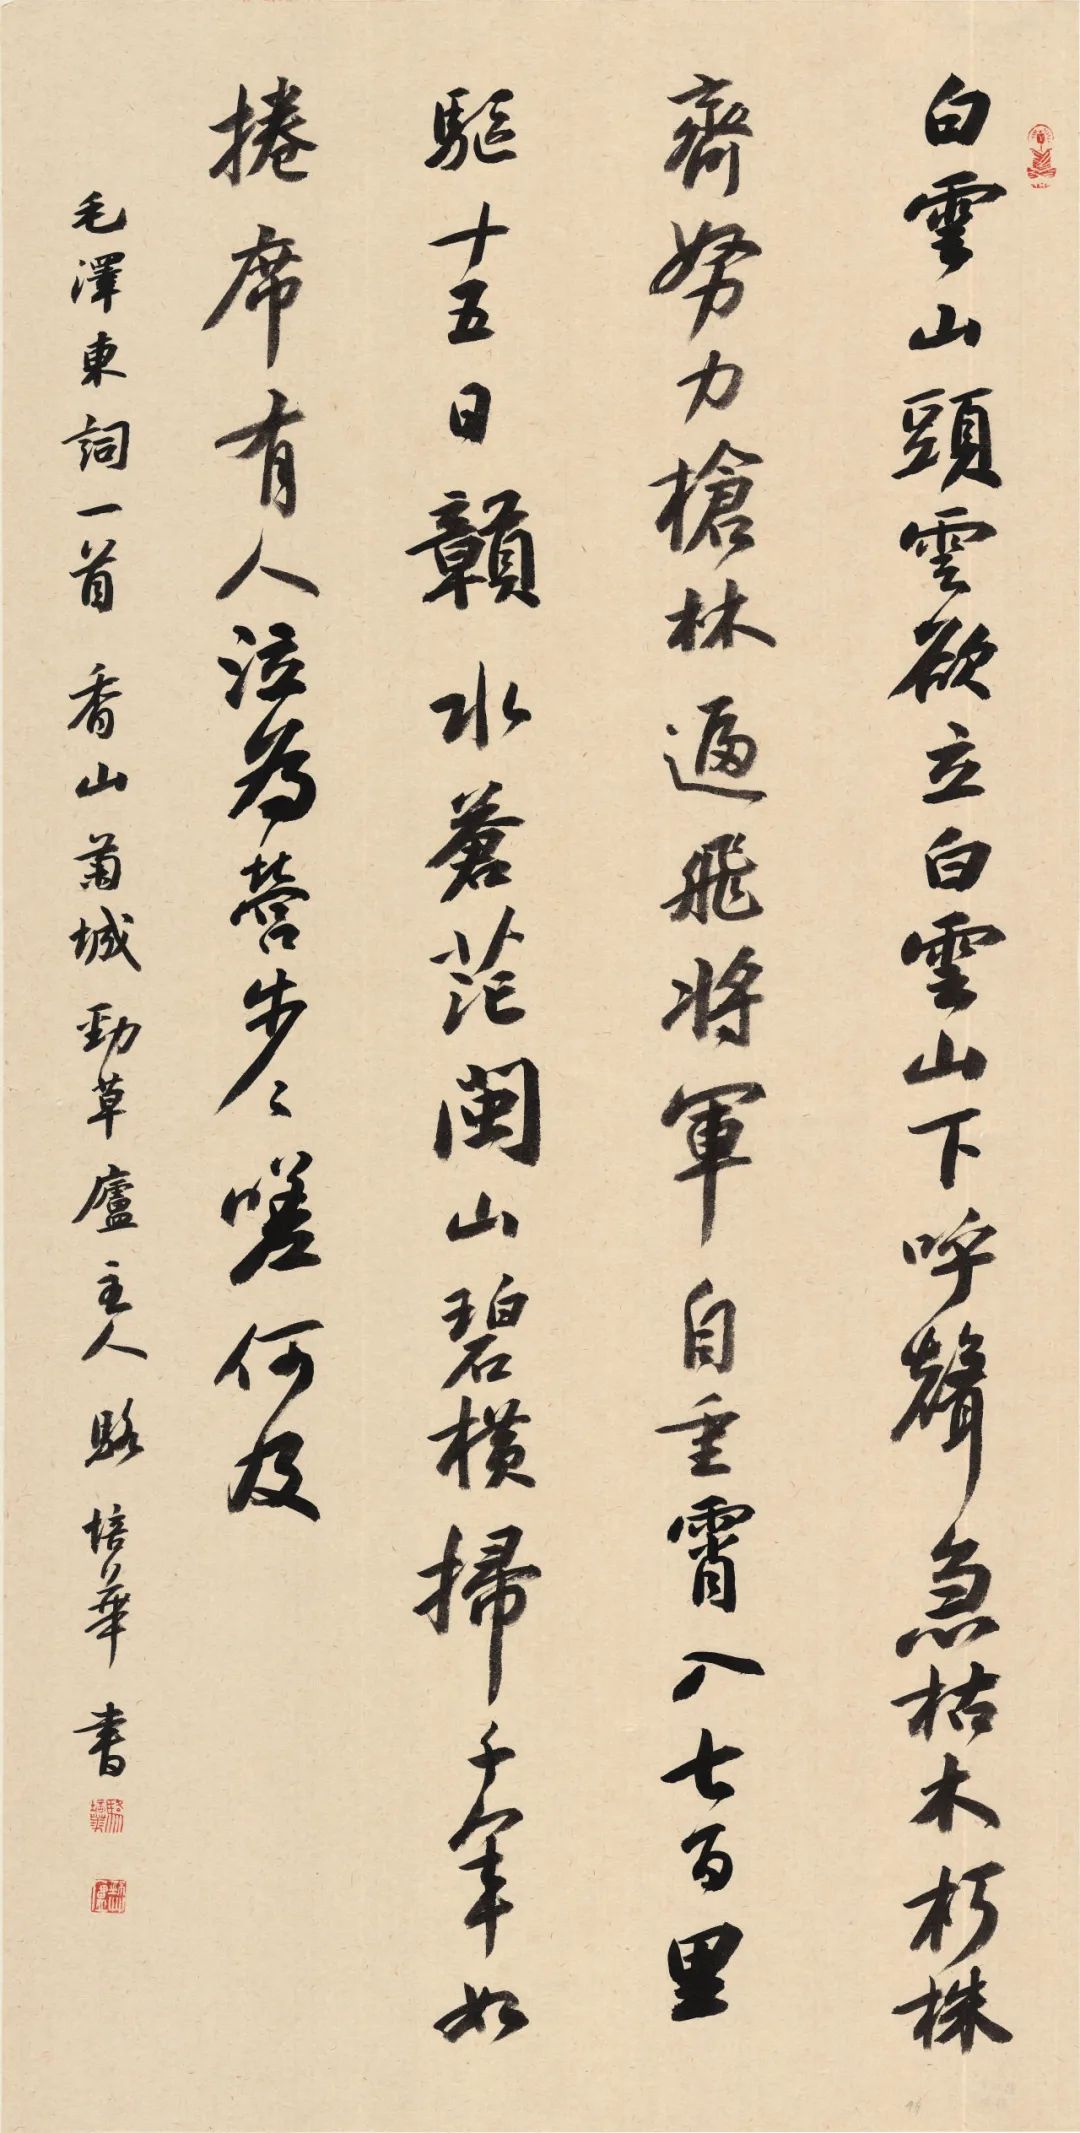 白雲山頭雲欲立白雲山下呼聲急枯木朽株
齊努力槍林逼飛將軍自重霄入七百里
驅十五日贛水蒼茫閩山碧橫掃千軍如
捲席有人泣為營步々嗟何及
毛澤東詞一首 香山菊城勁草廬主人 駱培華 書